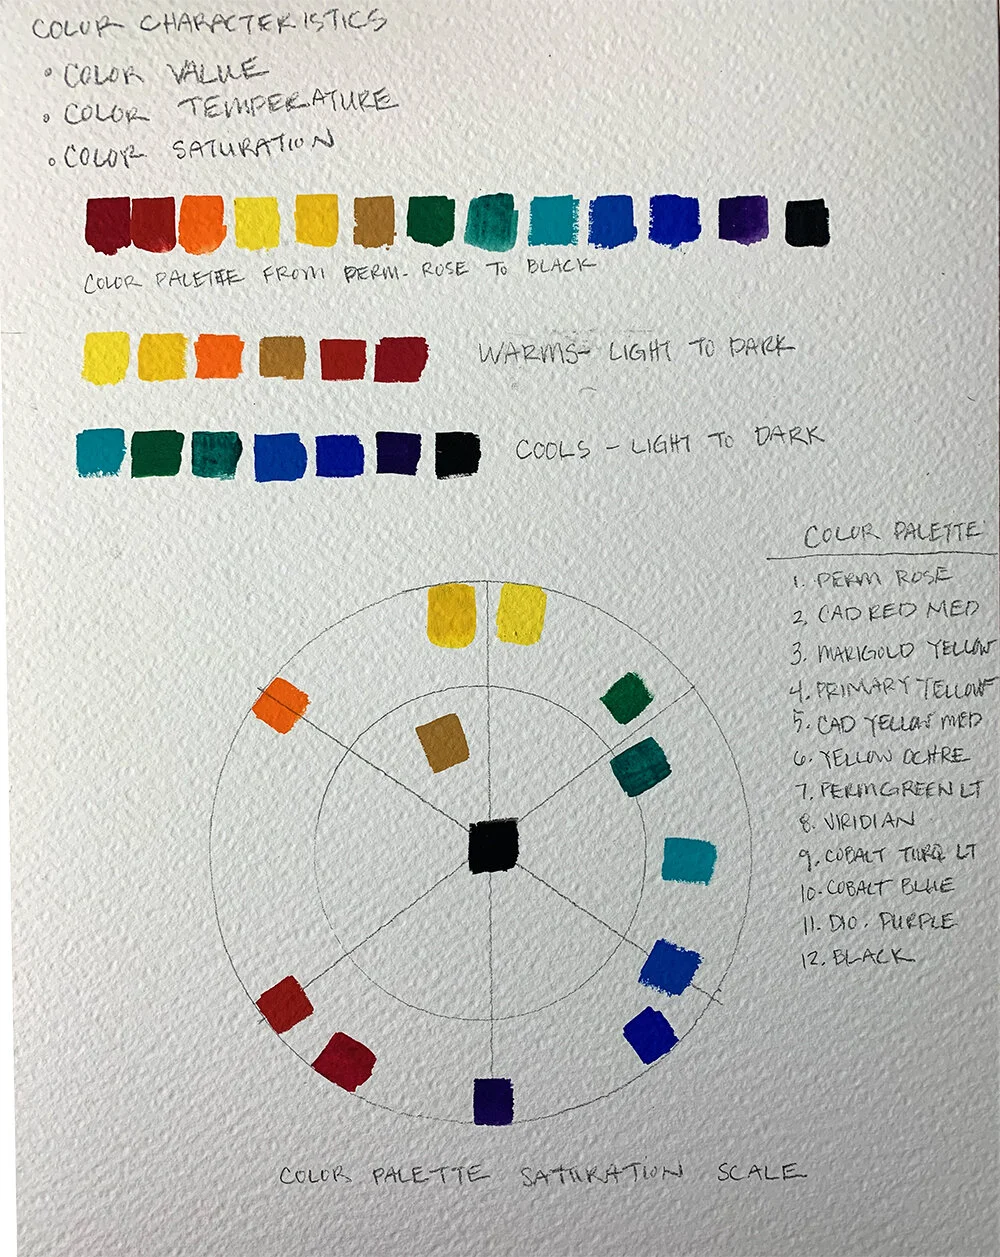 COLOR CHARACTERISTICS
• COLOR VALUE
• COLOR TEMPERATURE
• COLOR SATURATION
COLOR PALETTE FROM PERM. ROSE TO BLACK
WARMS- LIGHT TO DARK
COOLS - LIGHT TO DARK
COLOR PALETTE
1. PERM ROSE
2. CAD RED MED
3. MARIGOLD YELLOW
4. PRIMARY YELLOW
5. CAD YELLOW MED
6. YELLOW OCHRE
7. PERM GREEN LT
8. VIRIDIAN
9. COBALT TURQ LT
10. COBALT BLUE
11. DIO. PURPLE
12. BLACK
COLOR PALETTE SATURATION SCALE